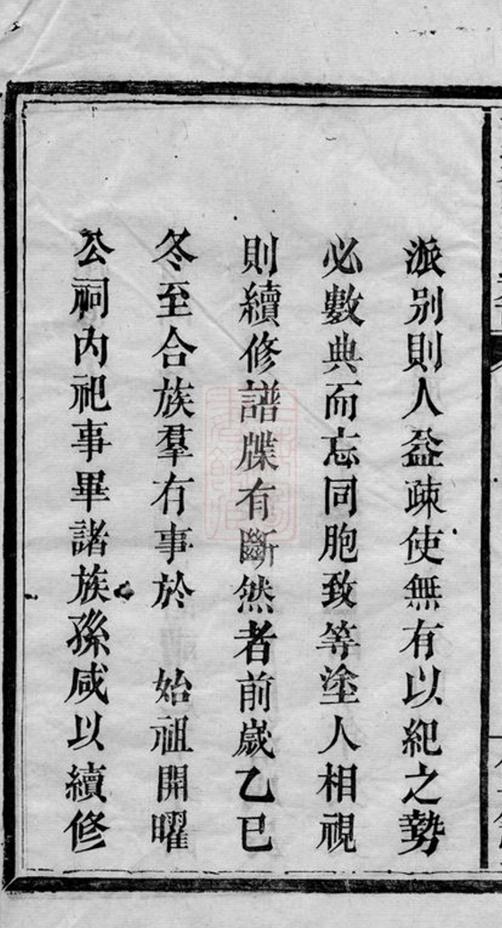 派别則人益疎使無有以紀之勢
必數典而忘同胞致等塗人相視
則續修譜牒有斷然者前歲乙巳
冬至合族羣有事於　始祖開曜
公祠内祀事畢諸族孫咸以續修